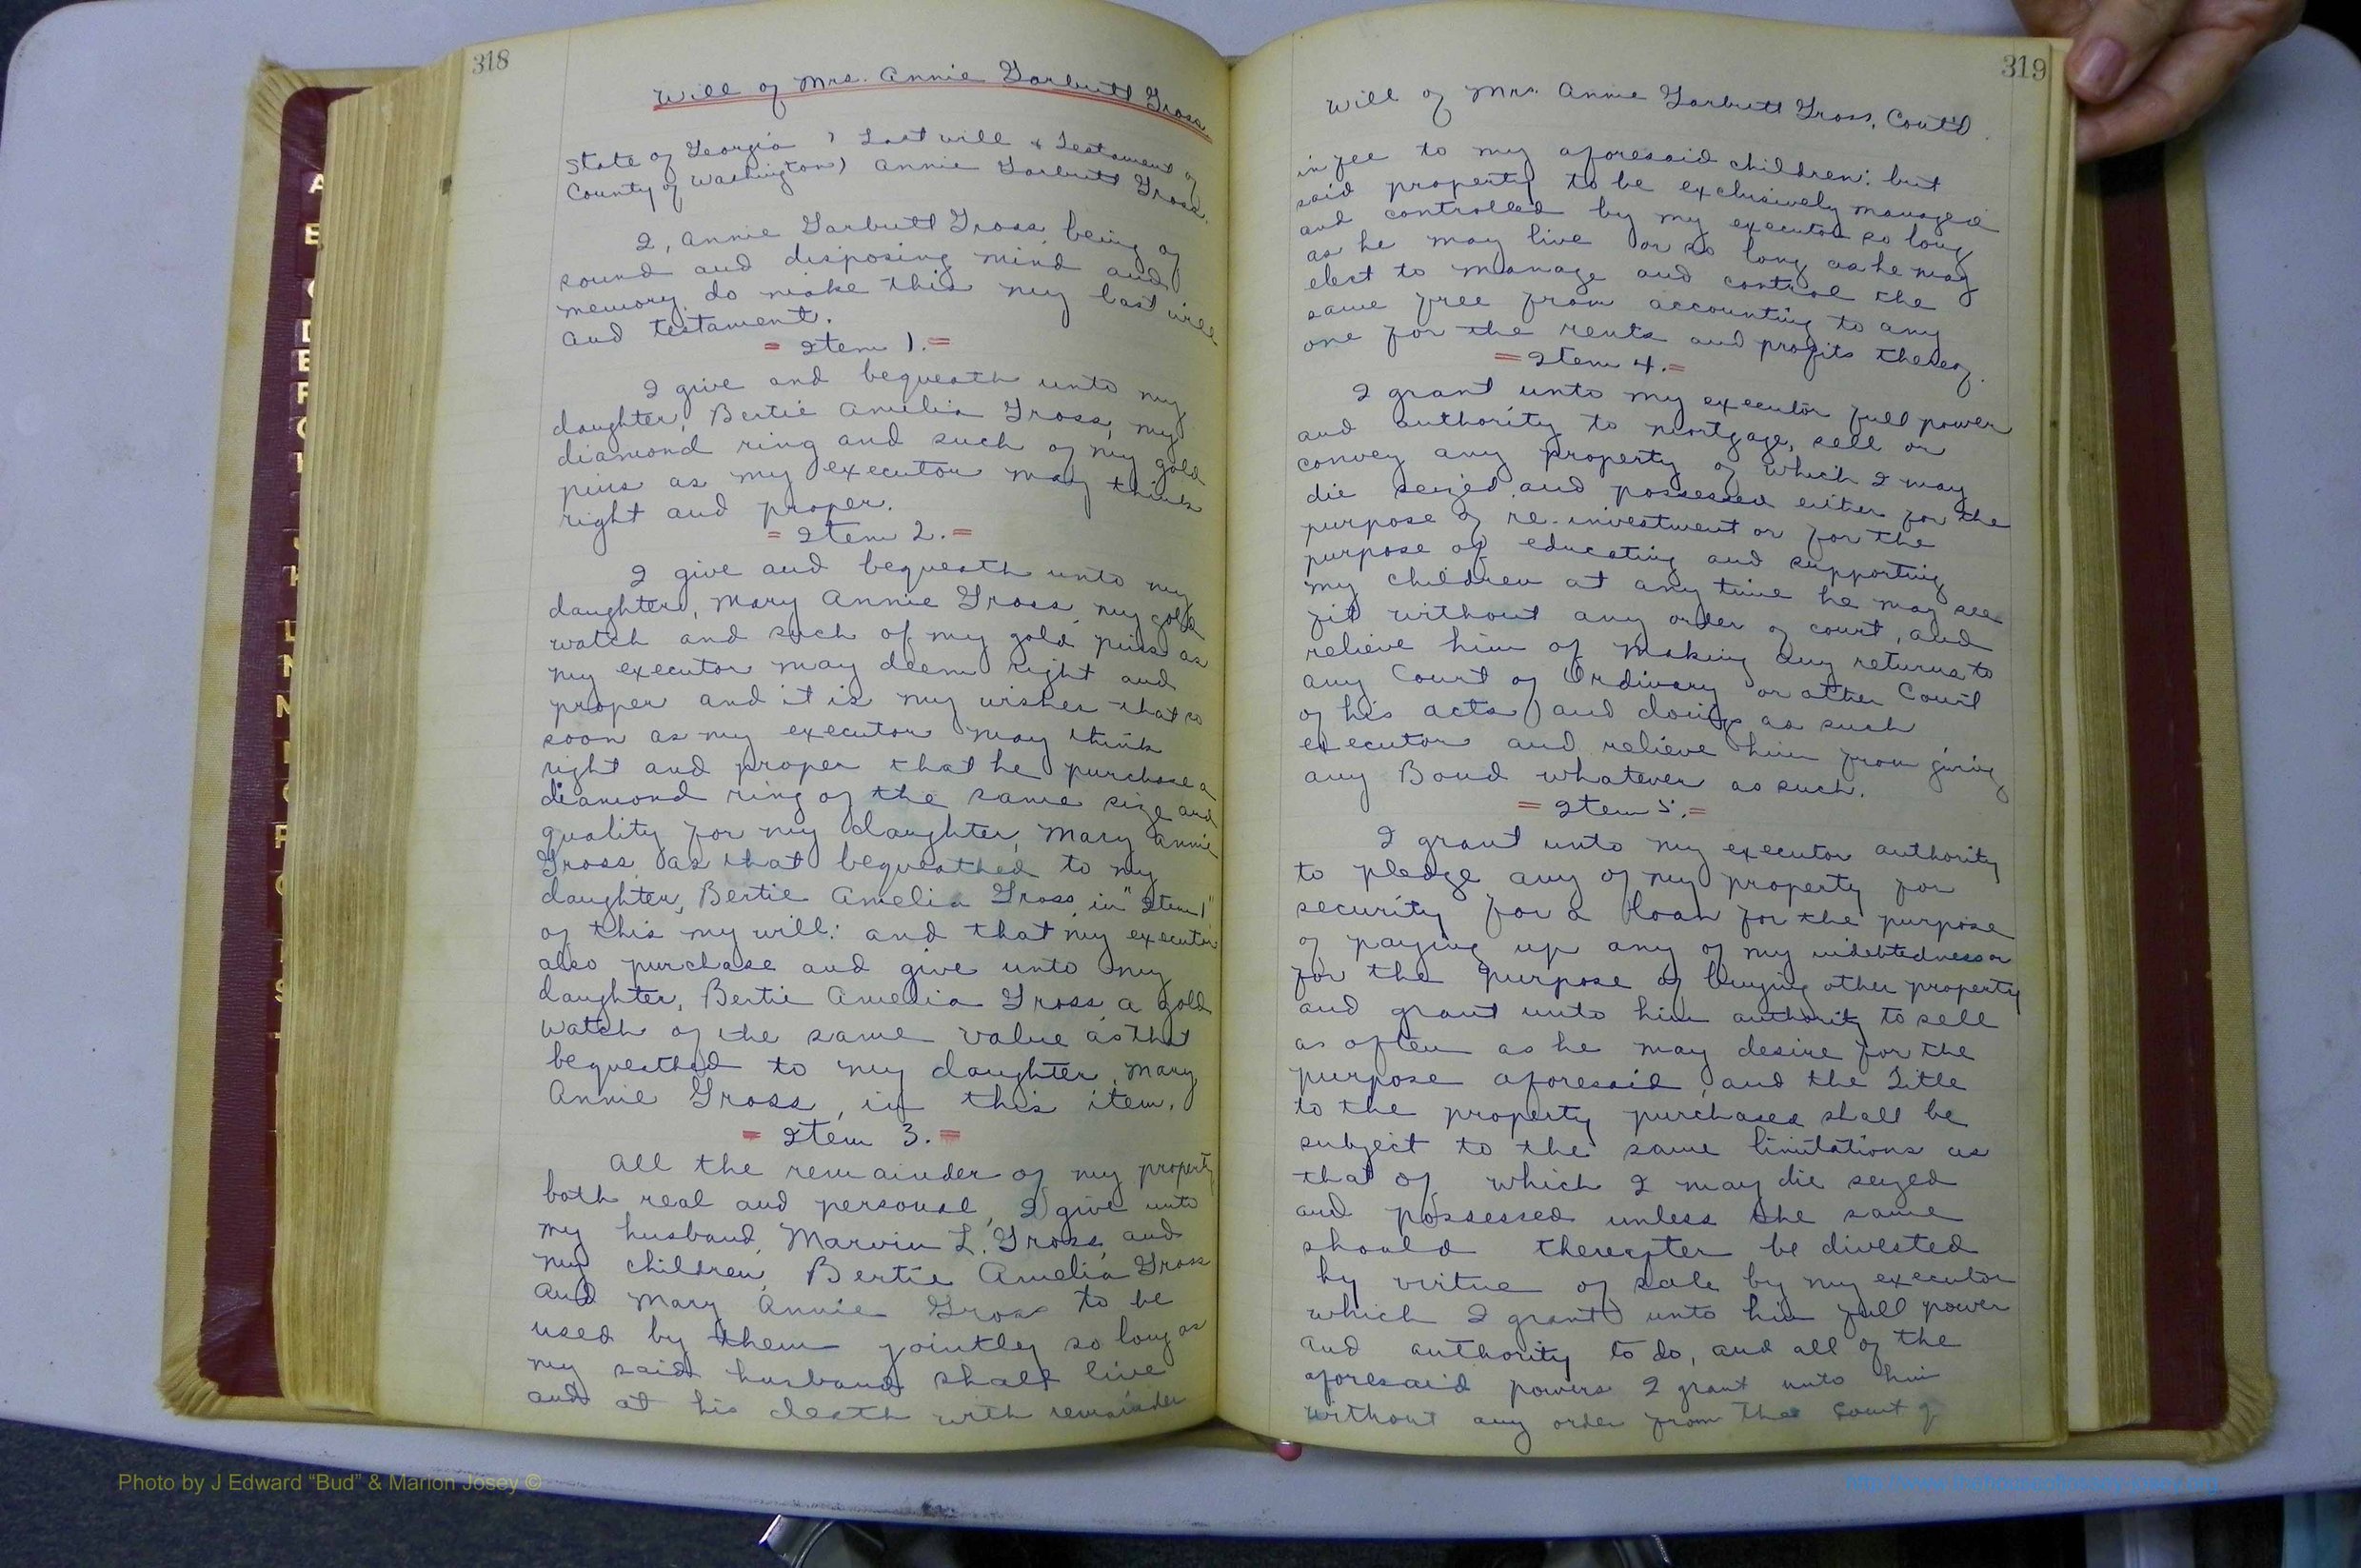 318
Will of Mrs. Annie Garbutt Gross.
State of Georgia ) Last will & Testament of
County of Washington) Annie Garbutt Gross.
I, Annie Garbutt Gross, being of
sound and disposing mind and
memory, do make this my last will
and testament.
= Item 1. =
I give and bequeath unto my
daughter, Bertie Amelia Gross, my
diamond ring and such of my gold
pins as my executor may think
right and proper.
= Item 2. =
I give and bequeath unto my
daughter, Mary Annie Gross, my gold
watch and such of my gold pins as
my executor may deem right and
proper and it is my wishes that so
soon as my executor may think
right and proper that he purchase a
diamond ring of the same size and
quality for my daughter, Mary Annie
Gross, as that bequeathed to my
daughter, Bertie Amelia Gross, in "Item 1"
of this my will: and that my executor
also purchase and give unto my
daughter, Bertie Amelia Gross, a gold
watch of the same value as that
bequeathed to my daughter, Mary
Annie Gross, in this item.
= Item 3. =
All the remainder of my property
both real and personal, I give unto
my husband, Marvin L. Gross, and
my children, Bertie Amelia Gross
and Mary Annie Gross to be
used by them jointly so long as
my said husband shall live
and at his death with remainder
319
Will of Mrs. Annie Garbutt Gross, Cont'd.
in fee to my aforesaid children: but
said property to be exclusively managed
and controlled by my executor so long
as he may live or so long as he may
elect to manage and control the
same free from accounting to any
one for the rents and profits thereof.
= Item 4. =
I grant unto my executor full power
and authority to mortgage, sell or
convey any property of which I may
die seized and possessed either for the
purpose of re-investment or for the
purpose of educating and supporting
my children at any time he may see
fit without any order of court, and
relieve him of making any returns to
any Court of Ordinary or other Court
of his acts and doings as such
executor and relieve him from giving
any Bond whatever as such.
= Item 5. =
I grant unto my executor authority
to pledge any of my property for
security for a loan for the purpose
of paying up any of my indebtedness or
for the purpose of buying other property
and grant unto him authority to sell
as often as he may desire for the
purpose aforesaid, and the Title
to the property purchased shall be
subject to the same limitations as
that of which I may die seized
and possessed unless the same
should thereafter be divested
by virtue of sale by my executor
which I grant unto him full power
and authority to do, and all of the
aforesaid powers I grant unto him
without any order from the Court of
Photo by J Edward "Bud" & Marion Josey ©